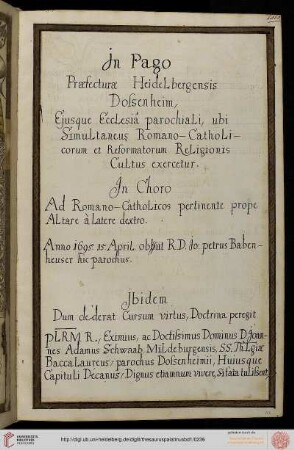 In Pago
Præfecturæ Heidelbergensis
Dossenheim,
Ejusque Ecclesiâ parochiali, ubi
Simultaneus Romano-Catholi-
corum et Reformatorum Religionis
Cultus exercetur.
In Choro
Ad Romano-Catholicos pertinente prope
Altare à latere dextro.
Anno 1695. 15. April. obijt R.D. Jo: petrus Baben-
heuser hic parochus.
Ibidem
Dum dederat Cursum virtus, Doctrina peregit
pl.R.M.R., Eximius, ac Doctissimus Dominus D. Joan-
nes Adamus Schwaab, Mildeburgensis, SS.
Baccalaureus, parochus Dossenhemii, Huiusque
Capituli Decanus, Dignus etiamnum vivere, Si fata tulissent
http://digi.ub.uni-heidelberg.de/diglit/
UNIVERSITÄTS-
BIBLIOTHEK
HEIDELBERG